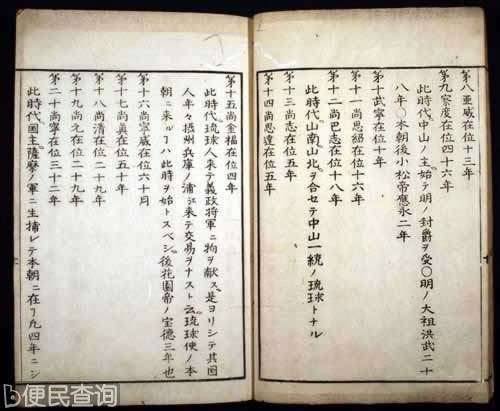 第八亜威在位十三年
第九察度在位四十六年
此時代中山ノ主始テ明ノ封爵ヲ受〇明ノ大祖洪武二十
八年〇本朝後小松帝應永二年
第十武寧在位十年
第十一尚思紹在位十六年
第十二尚巴志在位十八年
此時代山南山北ヲ合セテ中山一統ノ琉球トナル
第十三尚志在位五年
第十四尚思達在位五年
第十五尚金福在位四年
此時代琉球人来テ義政将軍ニ物ヲ献ス是ヨリシテ其国
人年々摂州兵庫ノ浦江来テ交易ヲナスト云琉球使ノ本
朝ニ来ルヿハ此時ヲ始トスベシ後花園帝ノ宝徳三年也
第十六尚寧威在位六十月
第十七尚真在位五十年
第十八尚清在位二十九年
第十九尚元在位二十九年
第二十尚寧在位三十二年
此時代國主薩摩ノ軍ニ生捕レテ本朝ニ在ヿ九四年ニシ
便民查询